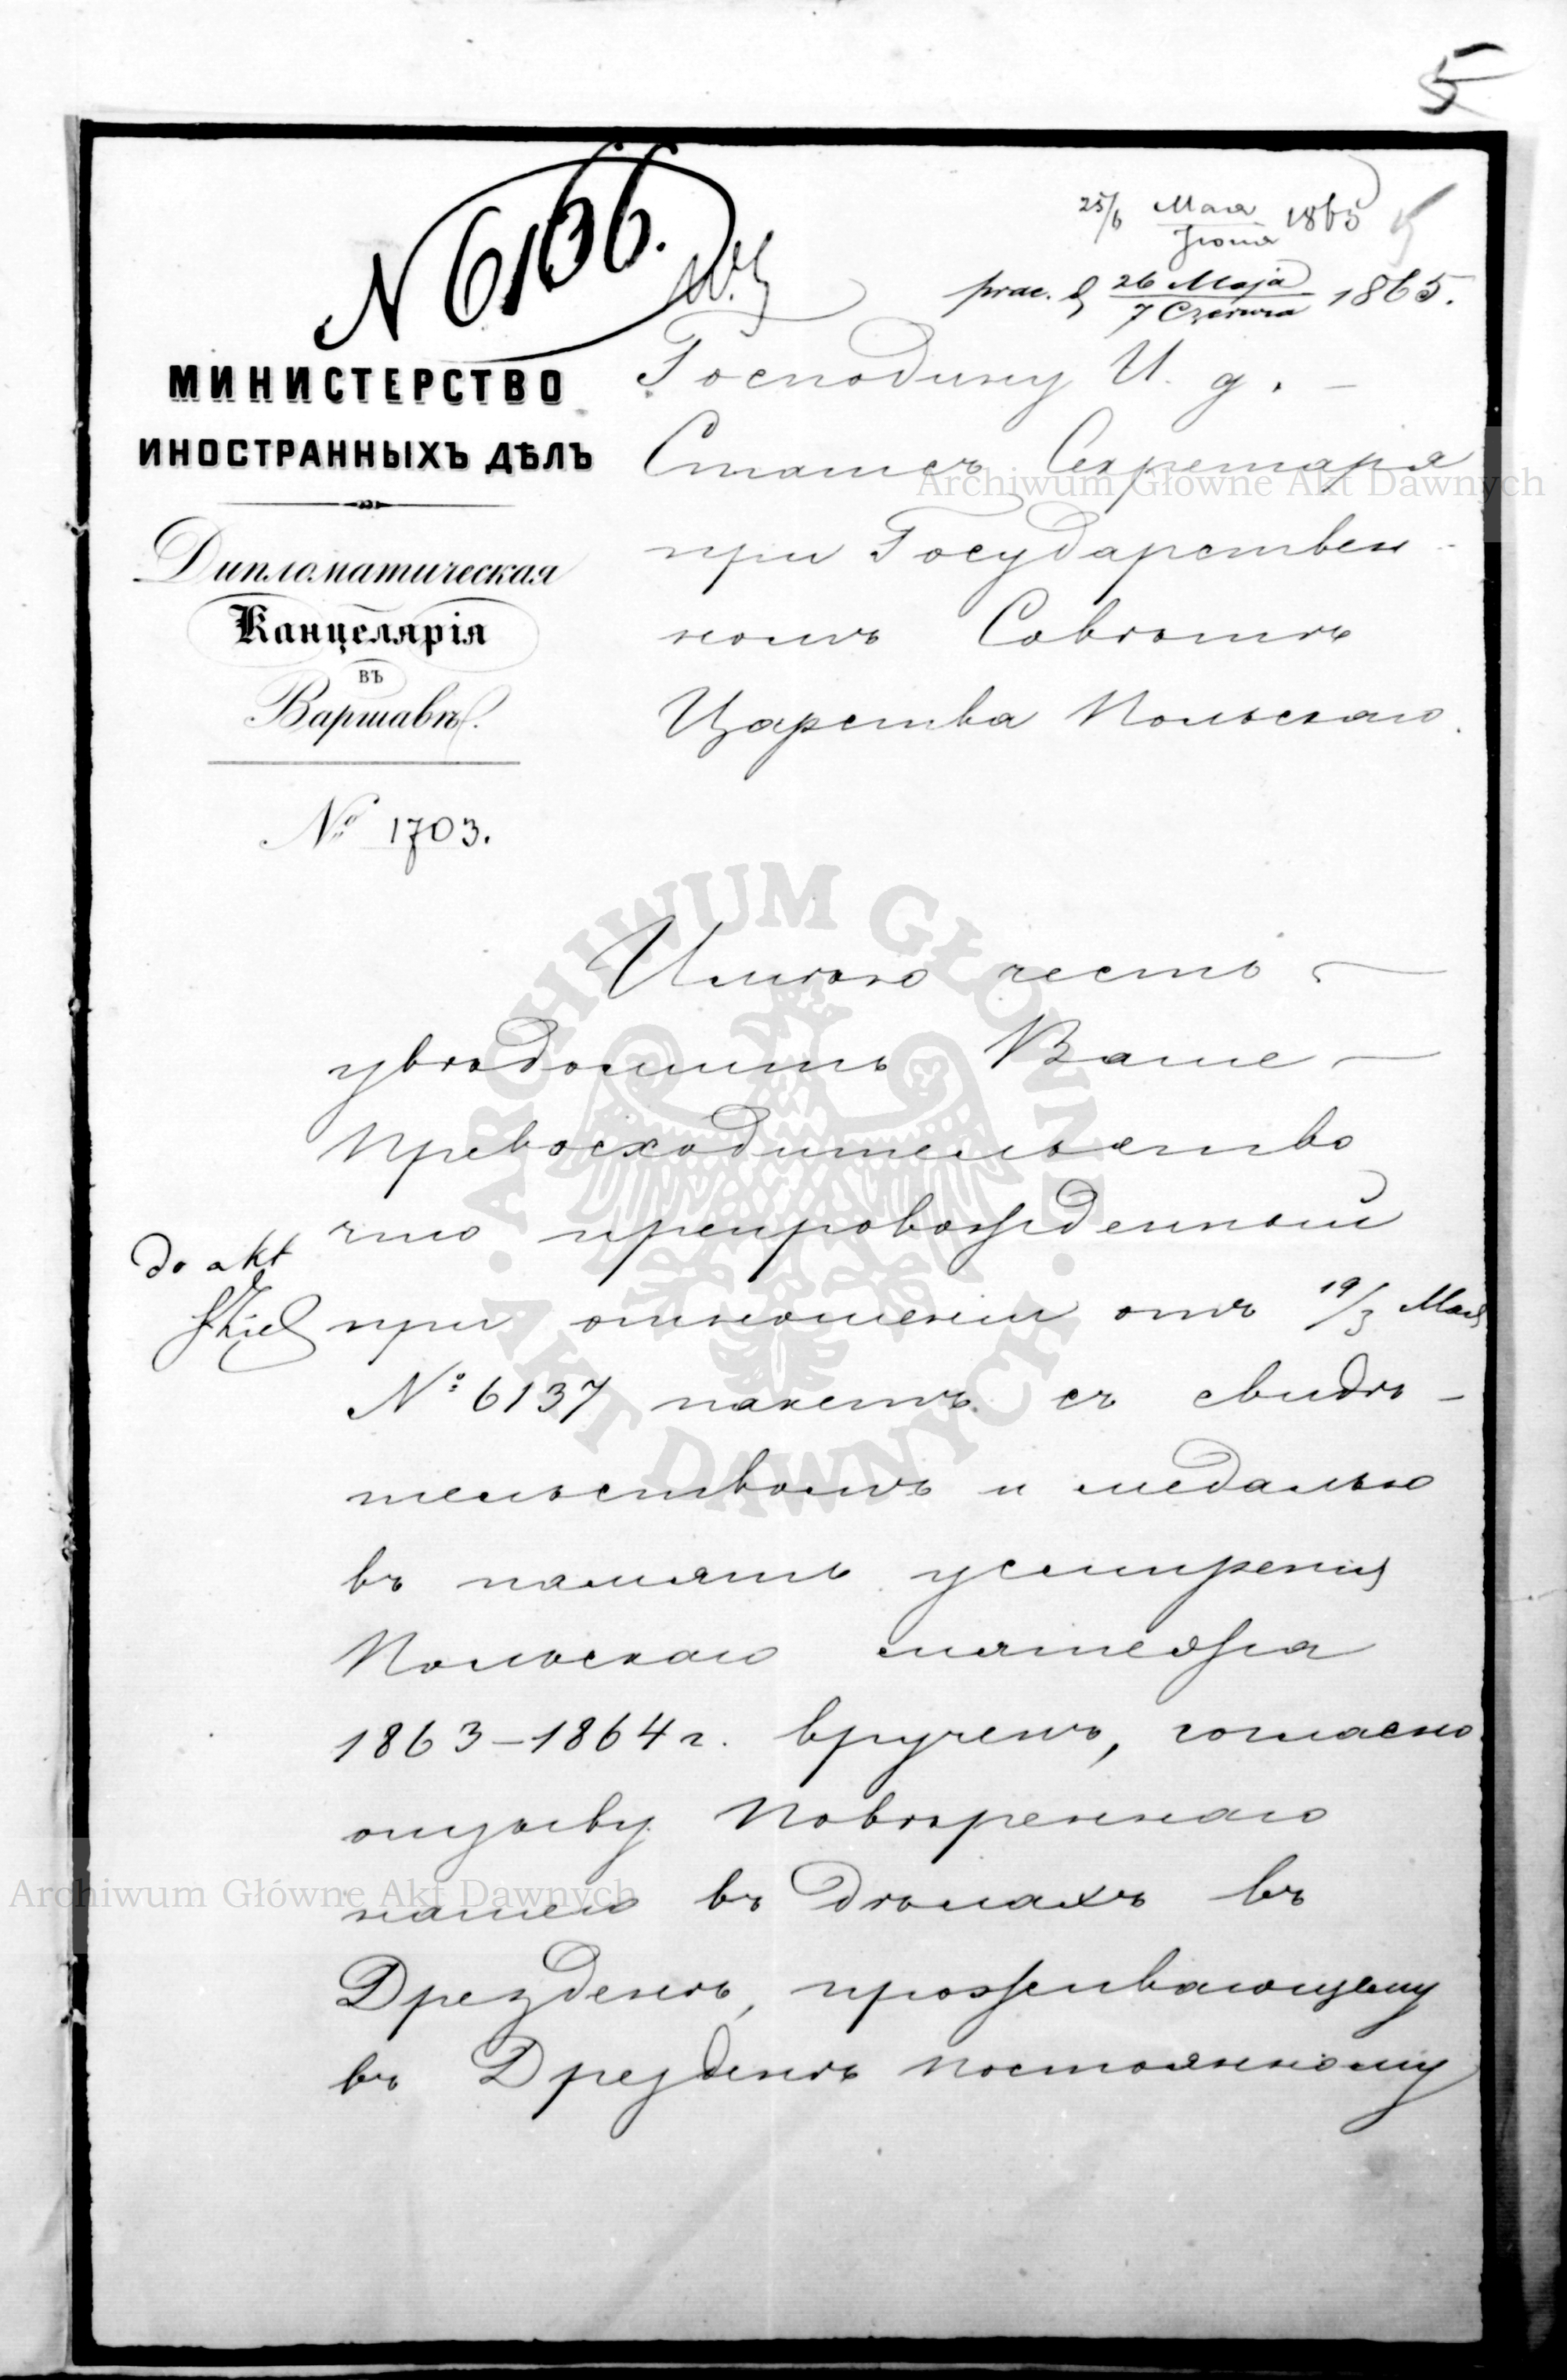 5
N 6166.
25/6 Мая
Іюня 1865
prae. d 26 Maja
7 Czerwca 1865.
МИНИСТЕРСТВО
ИНОСТРАННЫХЪ ДѢЛЪ
Дипломатическая
Канцелярія
въ
Варшавѣ.
№ 1703.
Господину И. д.
Статсъ Секретаря
при Государствен-
номъ Совѣтѣ
Царства Польскаго.
Имѣю честь
увѣдомить Ваше
Превосходительство
что препровожденный
do akt
при отношеніи отъ 19/3 Мая
№ 6137 пакетъ съ свидѣ-
тельствомъ и медалью
въ память усмиренія
Польскаго мятежа
1863-1864 г. врученъ, согласно
отзыву Повѣреннаго
нашего въ Дѣлахъ въ
Дрезденѣ, проживающему
въ Дрезденѣ постоянному
ARCHIWUM GŁÓWNE AKT DAWNYCH
Archiwum Główne Akt Dawnych
Archiwum Główne Akt Dawnych